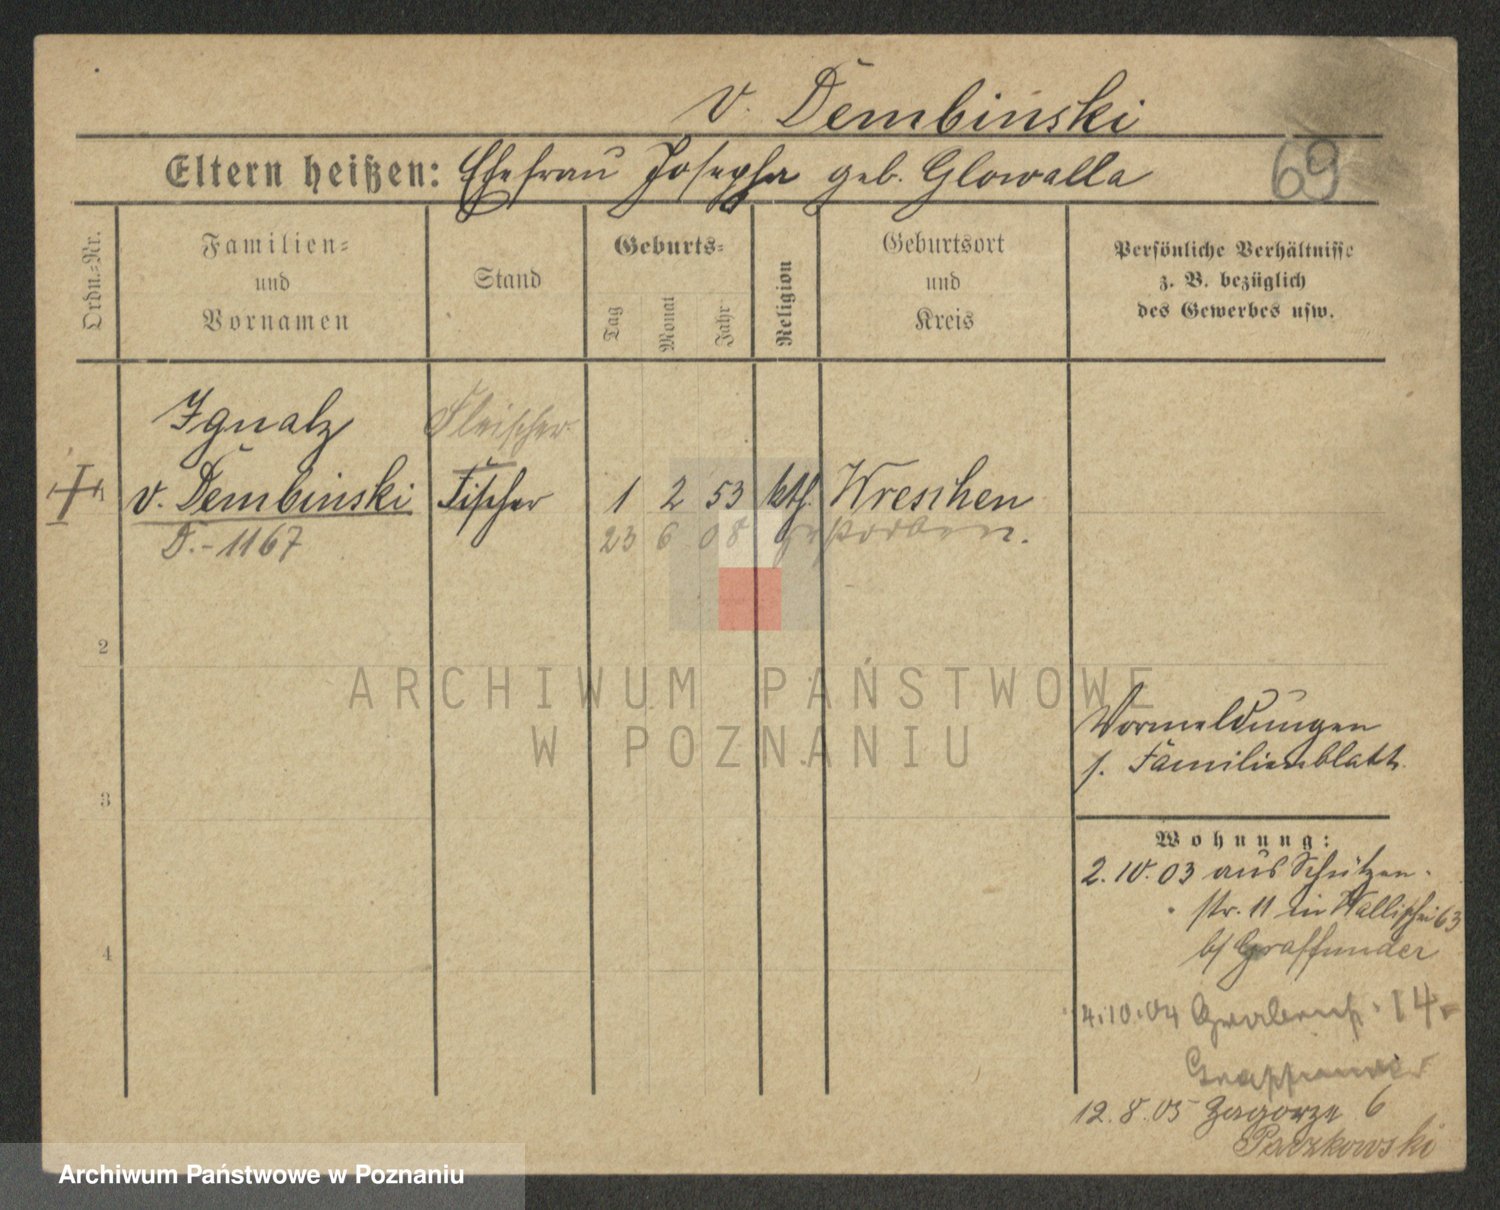 v. Dembinski
Eltern heißen: Ehefrau Josepha geb. Glowalla
69
Ordn.-Nr.
Familien-
und
Vornamen
Stand
Geburts-
Tag
Monat
Jahr
Religion
Geburtsort
und
Kreis
Persönliche Verhältnisse
z. B. bezüglich
des Gewerbes usw.
Ignatz Fleischer
1 v. Dembinski Fischer 1 2 53 kth. Wreschen
T.-1167 23 6 08 gestorben.
2
ARCHIWUM PAŃSTWOWE
W POZNANIU
Vormeldungen
s. Familienblatt.
3
Wohnung:
2.10.03 aus Schützen-
str. 11 in Wallischei 63
b/ Graffunder
4
4.10.04 14
12.8.05 Zagorze 6
Paczkowski
Archiwum Państwowe w Poznaniu